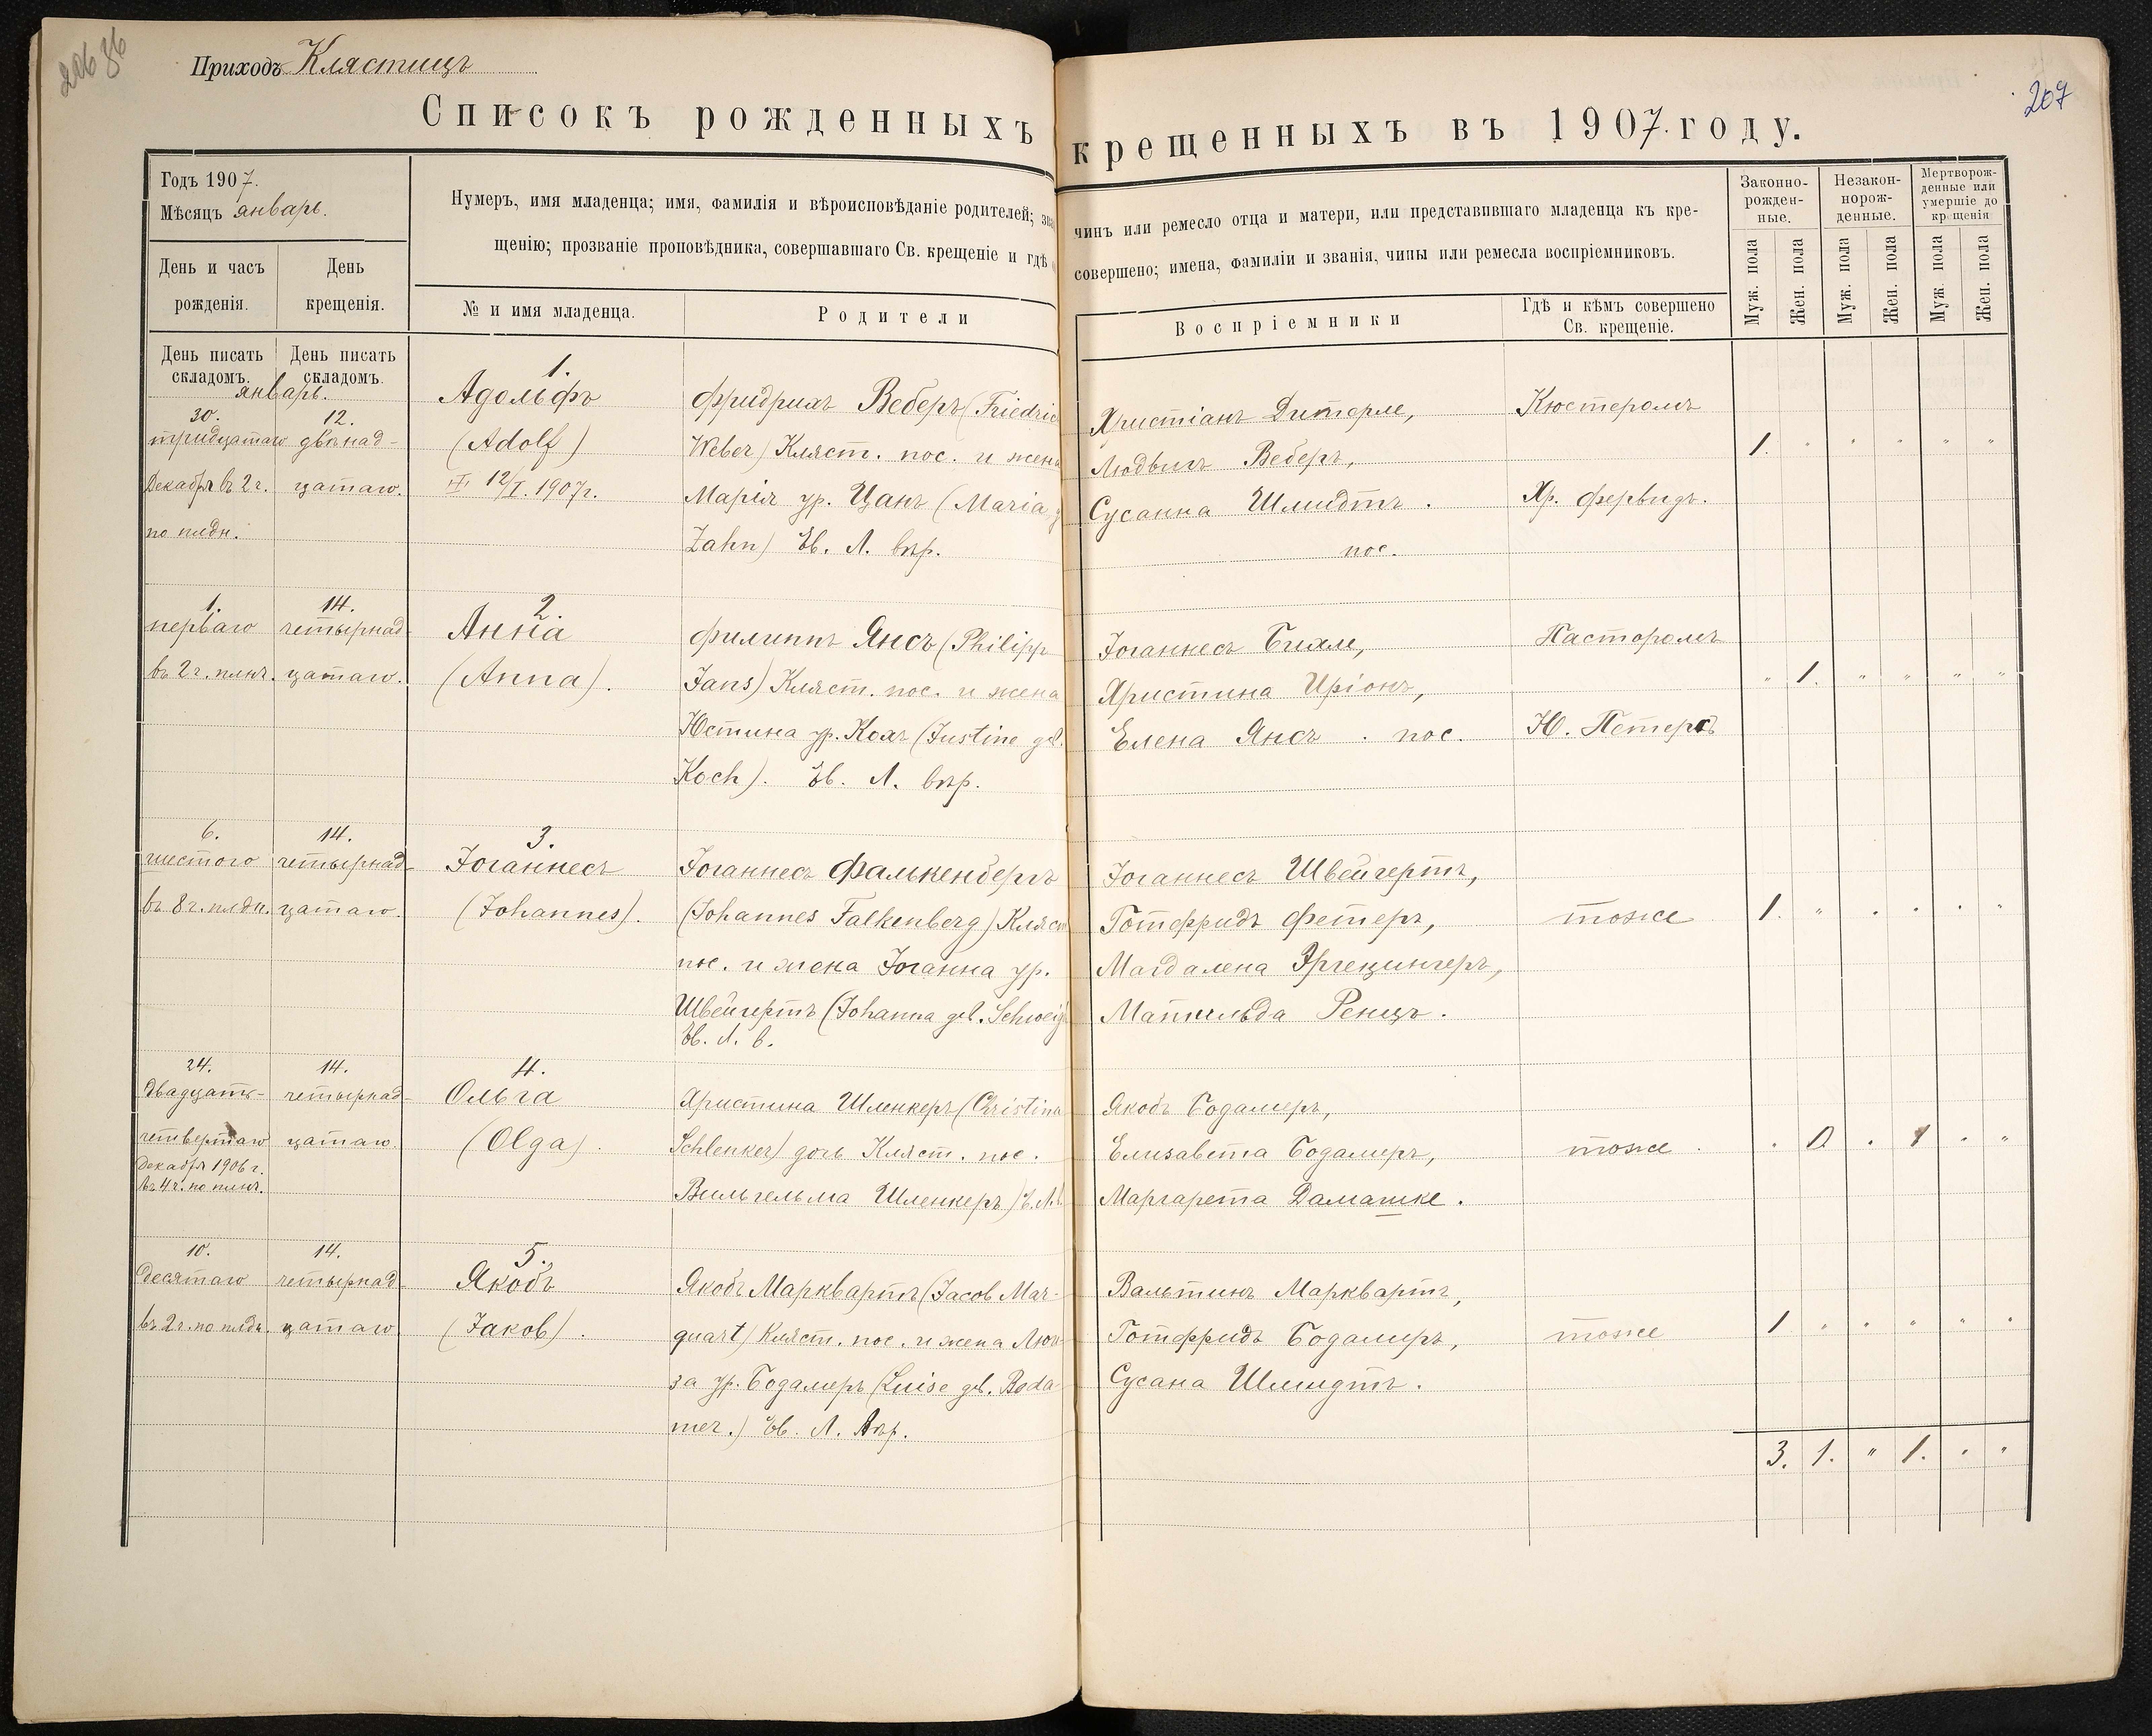 206
207
Приходъ Клястицъ
Списокъ рожденныхъ
крещенныхъ въ 1907. году.
Годъ 1907.
Мѣсяцъ январь.
Нумеръ, имя младенца; имя, фамилія и вѣроисповѣданіе родителей;
щенію; прозваніе проповѣдника, совершавшаго Св. крещеніе и гдѣ
чинъ или ремесло отца и матери, или представившаго младенца къ кре-
совершено; имена, фамиліи и званія, чины или ремесла воспріемниковъ.
Законно-
рожден-
ные.
Незакон-
норож-
денные.
Мертворож-
денные или
умершіе до
крещенія
День и часъ
рожденія.
День
крещенія.
№ и имя младенца.
Родители
Воспріемники
Гдѣ и кѣмъ совершено
Св. крещеніе.
Муж. пола
Жен. пола
Муж. пола
Жен. пола
Муж. пола
Жен. пола
День писать
складомъ.
День писать
складомъ.
январь.
30.
тридцатаго
Декабря въ 2 ч.
по плдн.
12.
двѣнад-
цатаго.
1.
Адольфъ
(Adolf)
12/I. 1907 г.
Фридрихъ Веберъ (Friedric
Weber) Кляст. пос. и жена
Марія ур. Цанъ (Maria
Zahn) Ев. Л. вѣр.
Христіанъ Дитерле,
Людвигъ Веберъ,
Сусанна Шмидтъ.
пос.
Кюстеромъ
Хр. Фервидъ.
1. " " " " "
1.
перваго
въ 2 ч. плнч.
14.
четырнад-
цатаго.
2.
Анна
(Anna).
Филиппъ Янсъ (Philipp
Jans) Кляст. пос. и жена
Юстина ур. Кохъ (Justine geb.
Koch). Ев. Л. вѣр.
Іоганнесъ Бихле,
Христина Иріонъ,
Елена Янсъ. пос.
Пасторомъ
Ю. Петерсъ
" 1. " " " "
6.
шестого
въ 8 ч. плдн.
14.
четырнад-
цатаго.
3.
Іоганнесъ
(Johannes).
Іоганнесъ Фалькенбергъ
(Johannes Falkenberg) Кляст
пос. и жена Іоганна ур.
Швейгертъ (Johanna geb. Schweig
Ев. Л. в.
Іоганнесъ Швейгертъ,
Готфридъ Фетеръ,
Магдалена Эргецингеръ,
Матильда Ренцъ.
тоже
1. " . . . "
24.
двадцать-
четвертаго
Декабря 1906 г.
въ 4 ч. по плнч.
14.
четырнад-
цатаго.
4.
Ольга
(Olga).
Христина Шленкеръ (Christina
Schlenker) дочь Кляст. пос.
Вильгельма Шленкеръ) Е. Л. в.
Якобъ Бодамеръ,
Елизавета Бодамеръ,
Маргарета Дамашке.
тоже.
10.
десятаго
въ 2 ч. по плдн.
14.
четырнад-
цатаго
5.
Якобъ
(Jakob).
Якобъ Марквартъ (Jacob Mar-
quart) Кляст. пос. и жена Люи-
за ур. Бодамеръ (Luise geb. Boda-
mer.) Ев. Л. вѣр.
Вальтинъ Марквартъ,
Готфридъ Бодамеръ,
Сусана Шмидтъ.
тоже
1 " " " " "
3. 1. " 1. " "